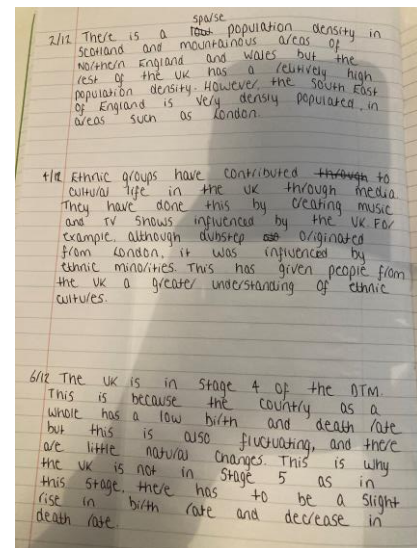 sparse
2/12 There is a low population density in
Scotland and mountainous areas of
Northern England and Wales but the
rest of the UK has a relitively high
population density. However, the South East
of England is very densly populated, in
areas such as London.
4/12 Ethnic groups have contributed through to
cultural life in the UK through media
They have done this by creating music
and TV shows influenced by the UK. For
example, although dubstep originated
from London, it was influenced by
ethnic minorities. This has given people from
the UK a greater understanding of ethnic
cultures.
6/12 The UK is in Stage 4 of the DTM.
This is because the country as a
whole has a low birth and death rate
but this is also fluctuating, and there
are little natural changes. This is why
the UK is not in Stage 5 as in
this stage, there has to be a slight
rise in birth rate and decrease in
death rate.